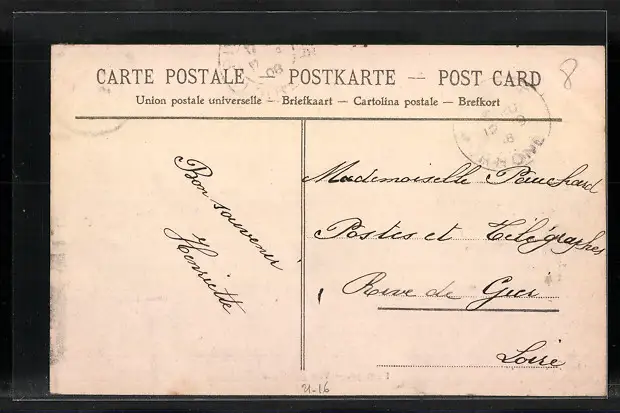 CARTE POSTALE — POSTKARTE — POST CARD
Union postale universelle — Briefkaart — Cartolina postale — Brefkort
8
Bon souvenir
Henriette
Mademoiselle
Postes et Télégraphes
Rive de Gier
Loire
21-16